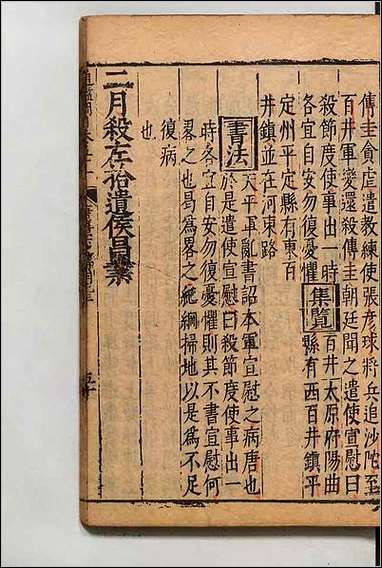 傳圭貪虐遣教練使張彥球將兵追沙陀至
百井軍變還殺傳圭朝廷聞之遣使宣慰曰
殺節度使事出一時
各宜自安勿復憂懼
集覽
百井太原府陽曲
縣有西百井鎮平
定州平定縣有東百
井鎮並在河東路
書法
天平軍亂書詔本軍宣慰之病唐也
於是遣使宣慰曰殺節度使事出一
時各宜自安勿復憂懼則其不書宣慰何
畧之也曷爲畧之紀綱掃地以是爲不足
復病
也
二月殺左拾遺侯昌業